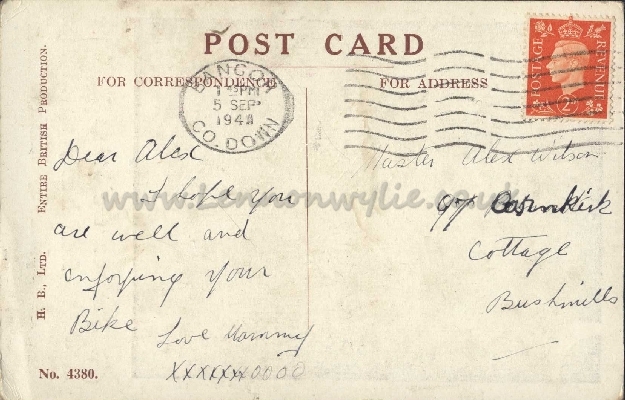 POST CARD
FOR CORRESPONDENCE
FOR ADDRESS
BANGOR
PM
5 SEP
194
CO. DOWN
POSTAGE
REVENUE
2D
www.Lennonwylie.co.uk
Dear Alex
I hope you
are well and
enjoying your
Bike
Love Mammy
xxxxxxx0000
Master Alex Wilson
Cottage
Bushmills
H. B., LTD. ENTIRE BRITISH PRODUCTION.
No. 4380.